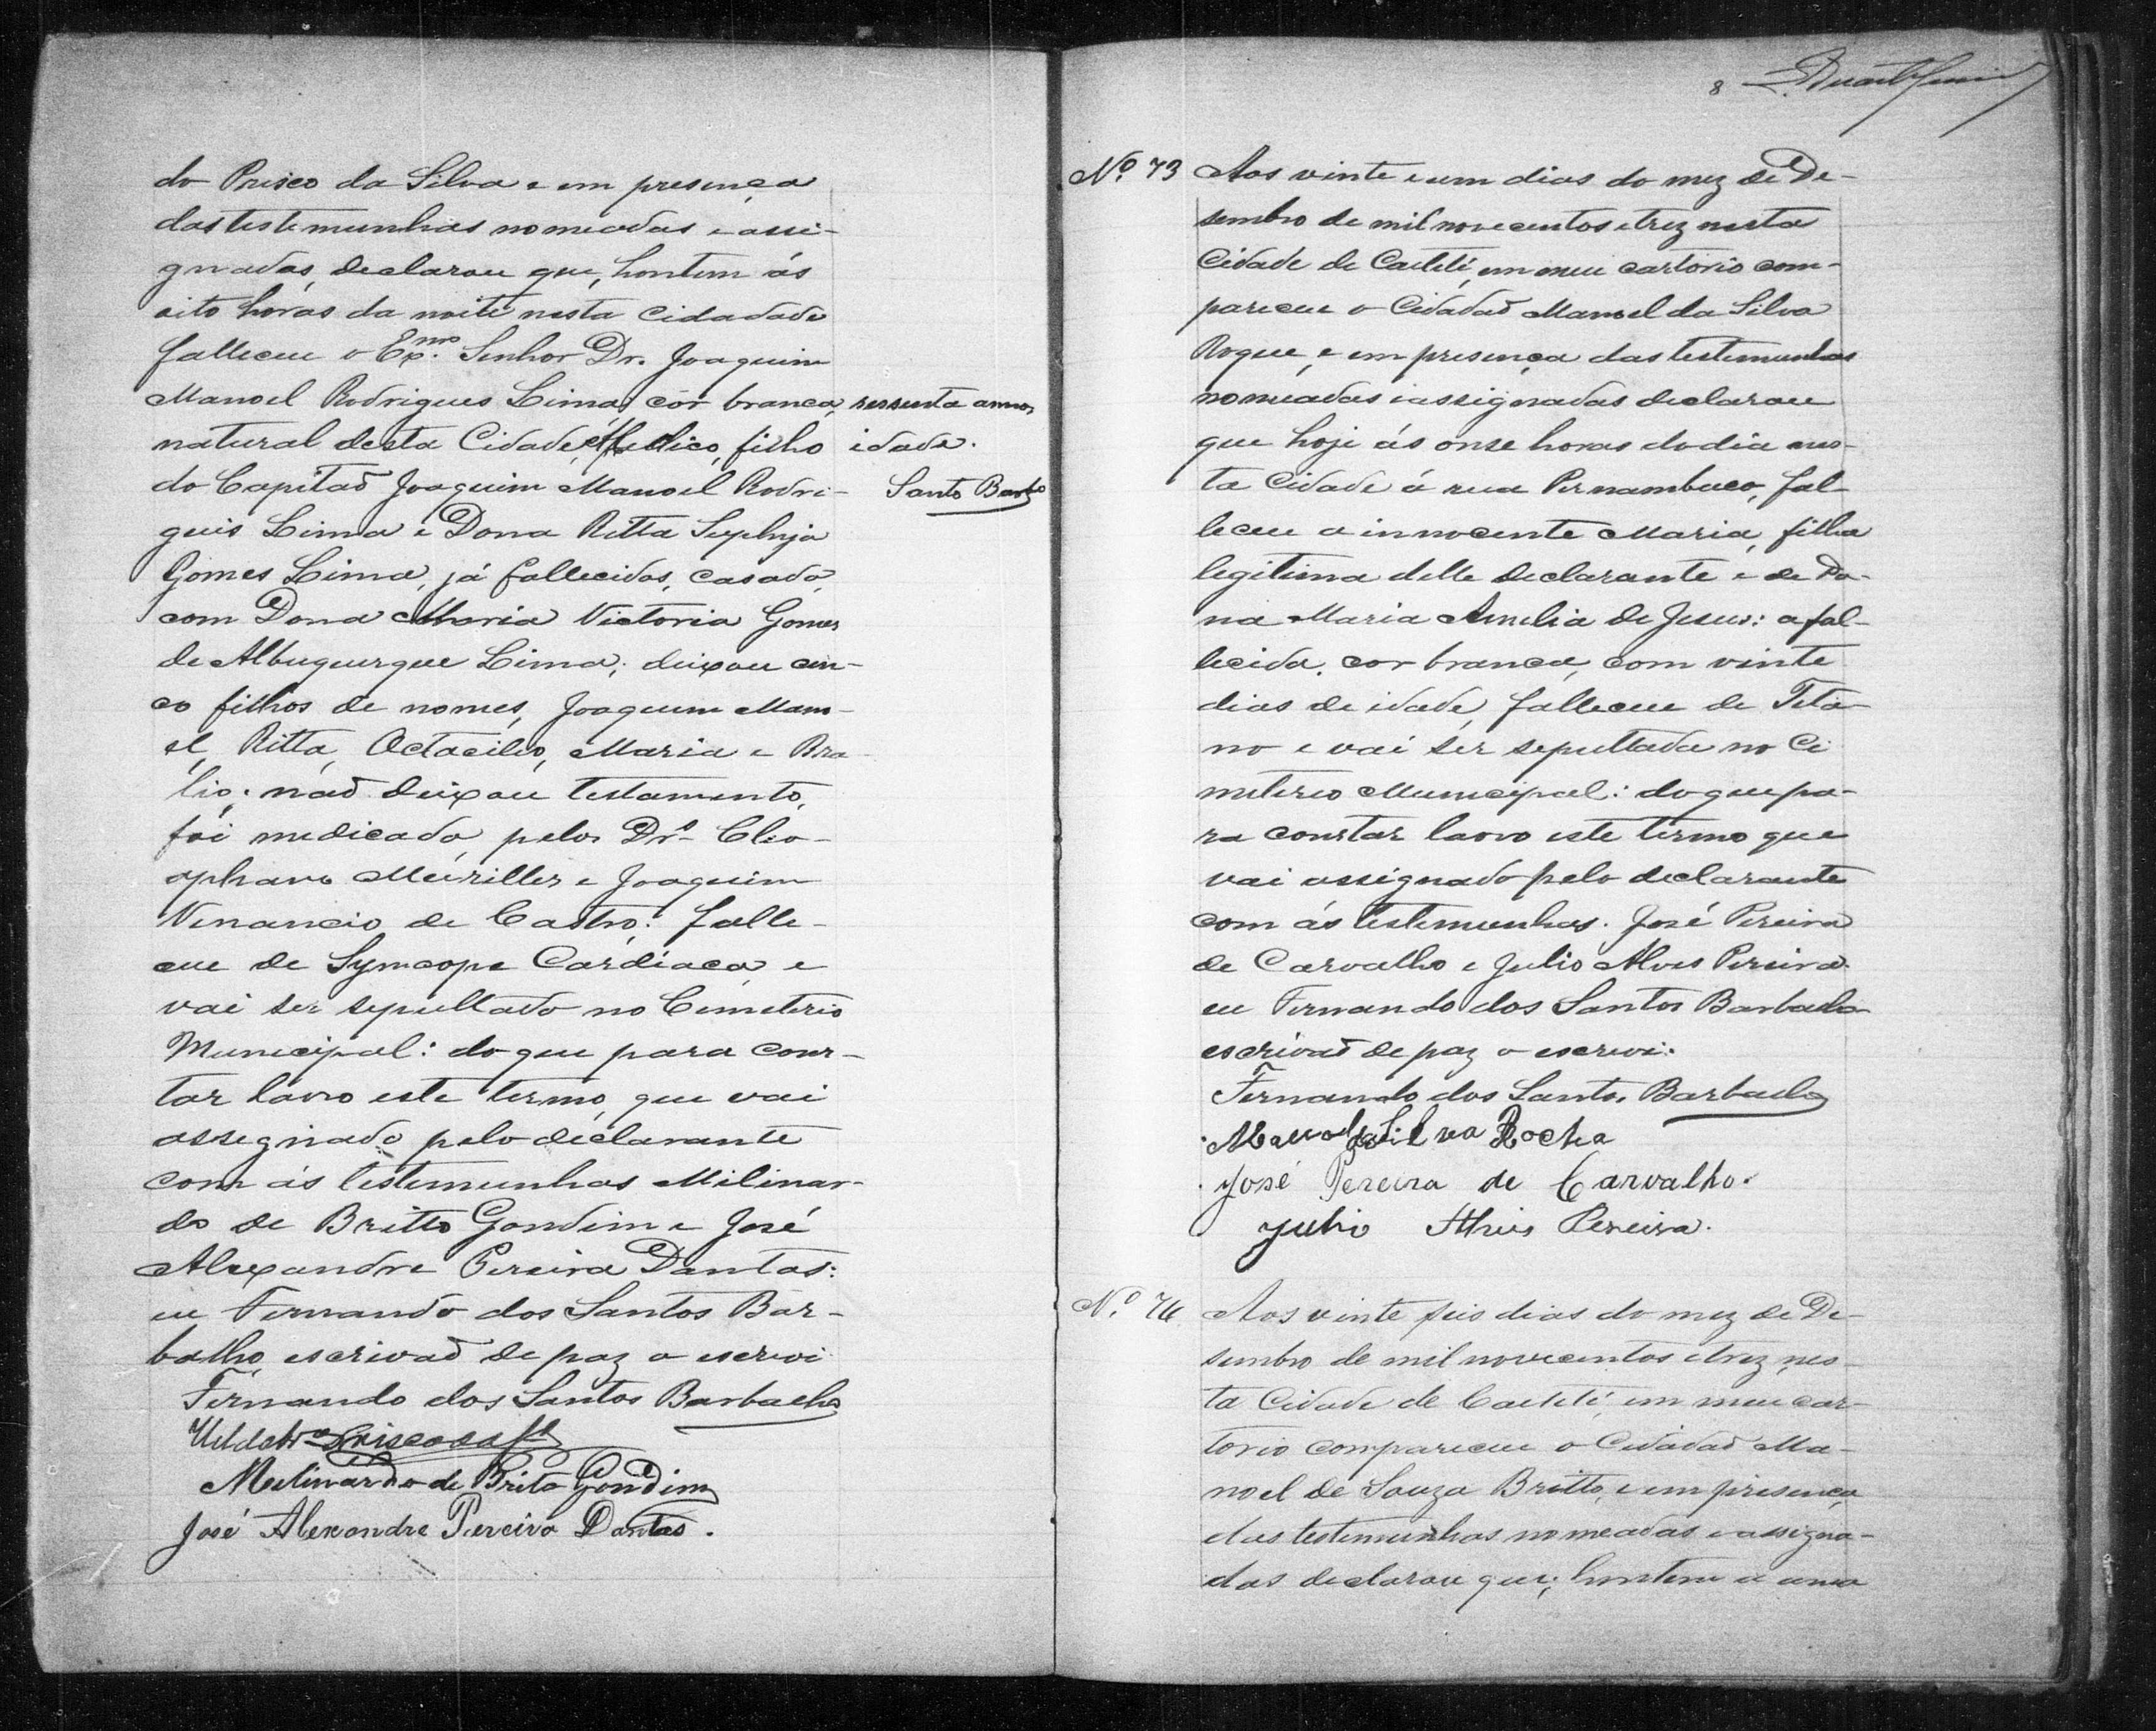 do Prisco da Silva e em presença
das testemunhas nomeadas e assi-
gnadas, declarou que, hontem ás
oito horas da noite nesta Cidadade
falleceu o Exmo. Senhor Dr. Joaquim
Manoel Rodrigues Lima, côr branca, sessenta annos
natural desta Cidade, Medico, filho idade.
do Capitaõ Joaquim Manoel Rodri- Santos Barbo
gues Lima e Dona Ritta
Gomes Lima, já fallecidos, casado
com Dona Maria Victoria Gomes
de Albuquerque Lima; deixou cin-
co filhos de nomes, Joaquim Mano-
el, Ritta, Octacilio, Maria e
naõ deixou testamento,
foi medicado pelos Drs. Cleo-
ophano Meirilles e Joaquim
Venancio de Castro: falle-
ceu de Syncope Cardiaca e
vai ser sepultado no Cemeterio
Municipal: do que para cons-
tar lavro este termo que vai
assegnado pelo declarante
com ás testemunhas Milinar-
do de Britto Gondim e José
Alexandre Pereira Dantas:
eu Fernando dos Santos Bar-
balho escrivaõ de paz o escrevi
Fernando dos Santos Barbalho
Melinardo de Brito Gondim
José Alexandre Pereira Dantas.
8
No. 73 Aos vinte e um dias do mez de De-
sembro de mil novecentos e trez nesta
Cidade de Caetité, em meu cartorio com-
pareceu o Cidadaõ Manoel da Silva
Roque, e em presença das testemunhas
nomeadas e assignadas declarou
que hoje ás onse horas do dia nes-
ta Cidade á rua Pernambuco, fal-
leceu a innocente Maria, filha
legitima delle declarante e de Do-
na Maria Amelia de Jesus: a fal-
lecida, cor branca, com vinte
dias de idade, falleceu de Teta-
no e vai ser sepultada no Ci
miterio Municipal: do que pa-
ra constar lavro este termo que
vai assignado pelo declarante
com ás testemunhas. José Pereira
de Carvalho e Julio Alves Pereira
eu Fernando dos Santos Barbalho
escrivaõ de paz o escrevi.
Fernando dos Santos Barbalho
Manoel da Silva Rocha
José Pereira de Carvalho.
Julio Alves Pereira.
No. 74 Aos vinte seis dias do mez de De-
sembro de mil novecentos e trez, nes-
ta Cidade de Caetité, em meu car-
torio compareceu o Cidadaõ Ma-
noel de Souza Britto, e em presença
das testemunhas nomeadas e assigna-
das declarou que; hontem a uma